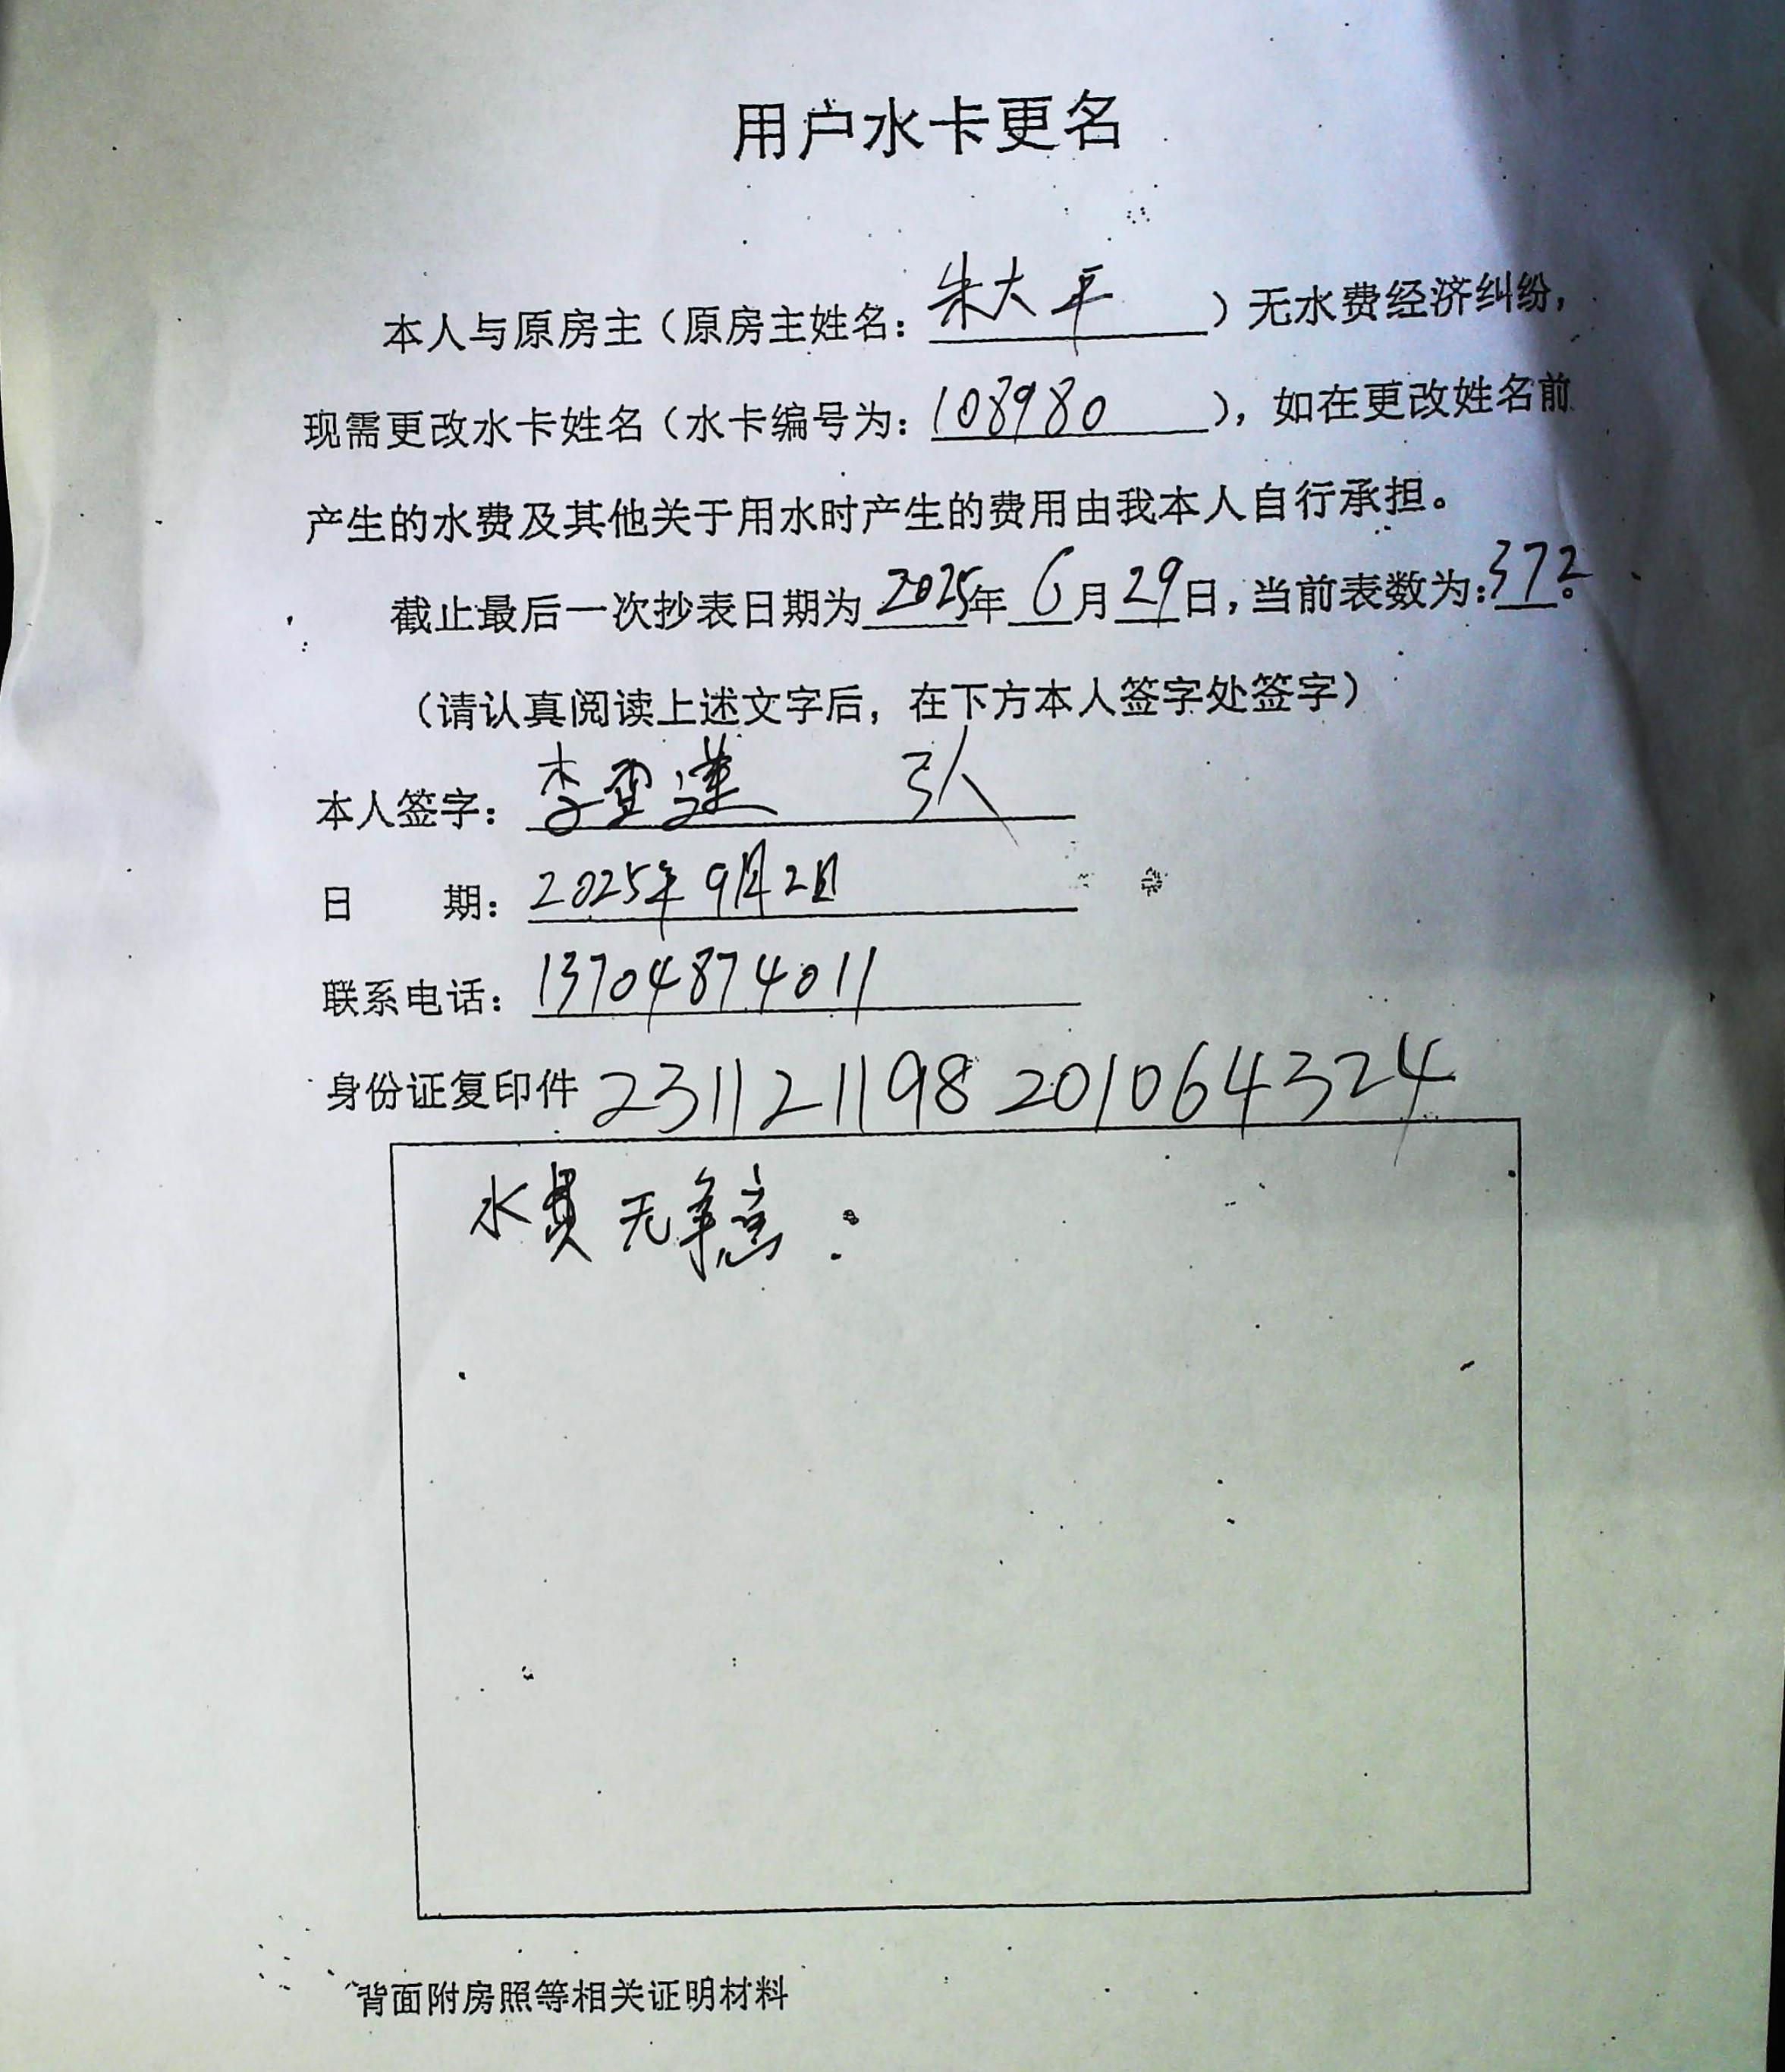 用户水卡更名
本人与原房主（原房主姓名：朱大平）无水费经济纠纷，
现需更改水卡姓名（水卡编号为：108980），如在更改姓名前
产生的水费及其他关于用水时产生的费用由我本人自行承担。
截止最后一次抄表日期为2025年6月29日，当前表数为：372。
（请认真阅读上述文字后，在下方本人签字处签字）
本人签字：李雪莲 3人
日 期：2025年9月2日
联系电话：13704874011
身份证复印件 231121198201064324
水费无争议：
背面附房照等相关证明材料